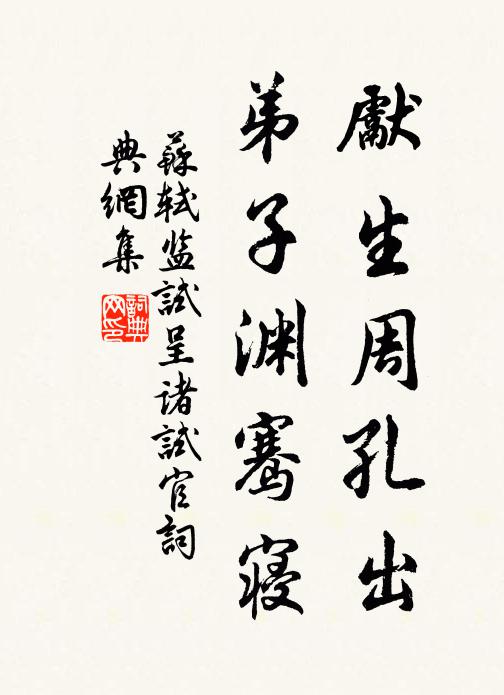 獻生周孔出
弟子渊骞寝
蘇軾监試呈諸試官詞
典網集
詞典
网印